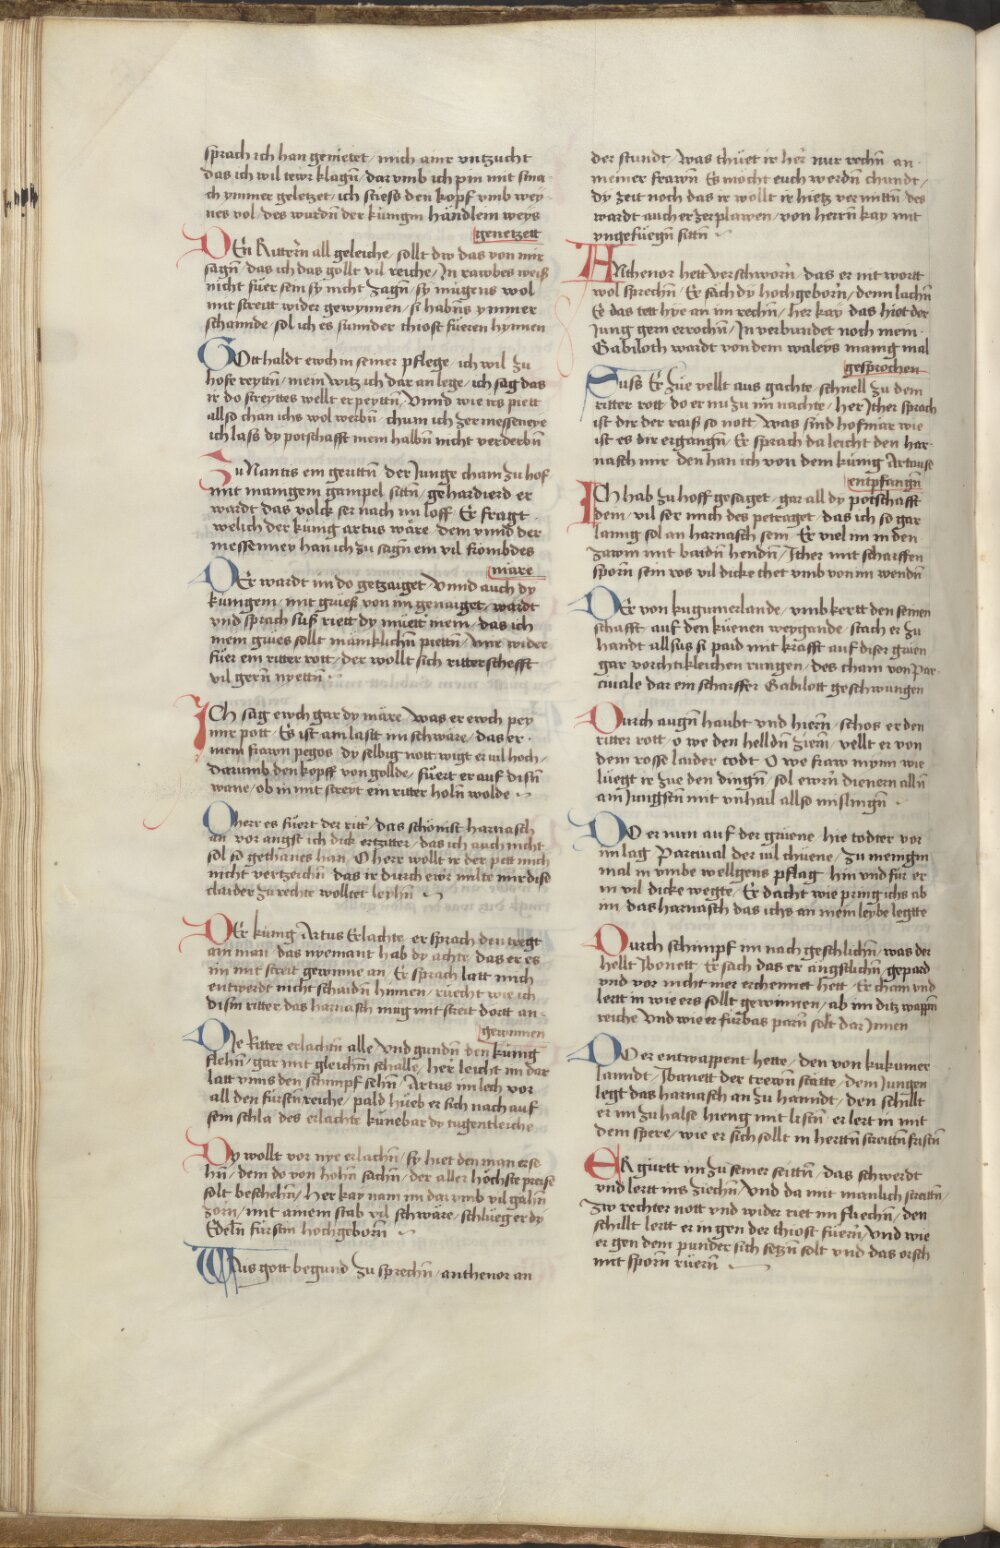 sprach ich han genietet / mich ainr vntzucht
das ich wil tewr klagn̄ / dar vmb ich pin mit sma
ch ymmer geletzet / ich stiess den kopf vmb wey
nes vol / des wurdn̄ der künigin händlein weys
genetzett
DEn Rittern̄ all geleiche / sollt dw das von mir
sagn̄ / das ich das gollt vil reiche / In rawbes weiß
nicht füer sein sy nicht zagn̄ / sy mügens wol
mit streitt wider gewynnen / si habn̄s ymmer
schannde / sol ich es sunnder thiost füeren hynnen
GOtt haldt ewch in seiner pflege / ich wil zu
hofe reyttn̄ / mein witz ich dar an lege / ich sag das
ir do streyttes wellt erpeyttn̄ / Vnnd wie irs piett
allso chan ichs wol werbn̄ / chum ich zer messeneye
ich lass dy potschafft mein halbn̄ nicht verderbn̄
Zu Nantis ein geuttn̄ der Junge cham zu hof
mit manigem gampel sittn̄ / gehardierd er
wardt das volck ser nach im loff / Er fragt
welich der künig artus wäre / dem vnnd der
messenney han ich zu sagn̄ ein vil frömbdes
märe
DEr wardt im do getzaiget / Vnnd auch dy
kunigein / mit grüeß von im genaiget / wardt
vnd sprach suß riett dy müett mein / das ich
mein grües sollt mänklichn̄ piettn̄ / Mir wider
füer ein ritter rott / der wollt sich ritterschefft
vil gern̄ nyettn̄
ICh sag ewch gar dy märe / was er ewch pey
mir pott / Es ist am lastt im schwäre / das er
mein frawn pegos / dy selbig nott wigt er vil hoch /
darumb den kopff von gollde / füert er auf disn̄
wane / ob in mit streyt ein ritter holn̄ wolde
O herr es füert der ritt' / das schönist harnasch
an / vor angst ich dick erzitter / das ich auch nicht
sol so gethanes han / O herr wollt ir der pett mich
nicht vertzeichn̄ / das ir durch ewr milte mir dise
claider zu rechte wolltet leyhn̄
DEr künig Artus Erlachte / er sprach den tregt
ain man / das nyemant hab dy achte / das er es
im mit streit gewinne an / Er sprach latt mich
entwerdt nicht schaidn̄ hinnen / ruecht wie ich
dism̄ ritter das harnasch mug mit streit dortt an
gewinnen
DIe Ritter erlachtn̄ alle / Vnd gundn̄ den künig
flehn̄ / gar mit gleichn̄ schalle / her leicht im dar
latt vnns den schimpf sehn̄ / Artus im lech vor
all den fürstn̄ reiche / pald hüeb er sich nach auf
sein schla / des erlachte künebar dy tugentleiche
DY wollt vor nye erlachn̄ / sy hiet den man erse
hn̄ / dem do von hohn̄ sachn̄ / der aller höchste preise
solt beschehn̄ / Her kay nam im dar vmb vil gähn̄
zorn / mit ainem stab vil schwäre / schlueg er dy
Edeln̄ fürstin hochgeborn̄
WAs gott begund zu sprechn̄ / anthenor an
der stundt / Was thüet ir her nur rechn̄ an
meiner frawn̄ Es mocht euch werdn̄ chundt /
dy zeit noch das ir wollt ir hietz vermittn̄ / des
wardt auch er zerplawen / von herrn̄ kay mit
vngefüegn̄ sittn̄
ANthenor hett verschworn̄ / das er nit wortt
wol sprechn̄ / Er säch dy hochgeborn̄ / denn lachn̄
Er das tett hye an im rechn̄ / her kay das hiet der
Jung gern errochn̄ / In verbundet noch mein
Gabiloth wardt von dem waleys manig mal
gesprochen
Suss Er zue vellt aus gachte / schnell zu dem
ritter rott / do er nu zu im nachte / her Ither sprach
ist dir der raiß so nott / Was sind hofmär wie
ist es dir ergangn̄ / Er sprach da leicht den har
nasch mir / den han ich von dem künig Artuse
entpfangn̄
ICh hab zu hoff gesaget / gar all dy potschafft
dein / vil ser mich des petraget / das ich so gar
lanng sol an harnasch sein / Er viel im in den
zawm mit baidn̄ hendn̄ / Ither mit scharffen
sporn̄ sein ros vil dicke thet vmb von im wendn̄
DEr von kugumerlande / vmb kertt den seinen
schafft / auf den küenen weygande / stach er zu
handt / allsus si paid mit krafft auf diser grüen
gar vorchtikleichen rungen / des cham von Par
civale dar ein scharffer Gabilott geschwungen
Durch augn̄ haubt vnd hiern̄ / schos er den
ritter rott / o we den helldn̄ ziern̄ / vellt er von
dem rosse laider todt / O we fraw mynn wie
lüegt ir zue den dingn̄ / sol ewrn̄ dienern alln̄
am Jungstn̄ mit vnhail allso mislingn̄
DO er nun auf der grüene / hie todter vor
im lag / Parcival der vil chüene / zu menigm̄
mal in vmbe wellgens pflag / hin vnd für er
in vil dicke wegte / Er dacht wie pring ichs ab
im / das harnasch das ichs an mein leybe legtte
Durch schimpf im nach geschlichn̄ / was der
hellt Jbonett / Er sach das er ängstlichn̄ / gepard
vnd vor nicht mer erchennet hett / Er cham vnd
lertt in wie ers sollt gewinnen / ab im ditz wappn̄
reiche / Vnd wie er fürbas parn̄ solt dar Jnnen
DO er entwappent hette / den von kukumer
lanndt / Jbanett der trewn̄ stätte / dem Jungen
legt das harnasch an zu hanndt / den schillt
er im zu halse hieng mit listn̄ / er lert in mit
dem spere / wie er sich sollt in hertn̄ streittn̄ fristn̄
ER gürtt im zu seiner seittn̄ / das schwerdt
vnd lertt ins ziechn̄ / Vnd da mit manlich streittn̄ /
zw rechter nott vnd wider riet im fliechn̄ / den
schillt lertt er in gen der thiost füern̄ / Vnd wie
er gen dem punder sich setzn̄ solt vnd das orsch
mit sporn̄ rüern̄